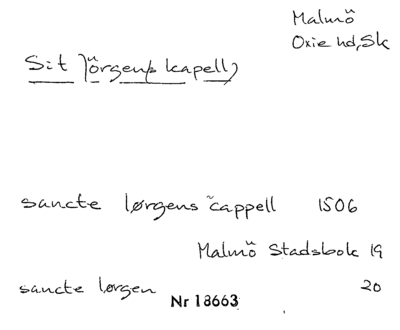 Malmö
Oxie hd, Sk
S:t Jörgens kapell
sancte lørgens cappell 1506
Malmö Stadsbok 19
sancte lørgen 20
Nr 18663